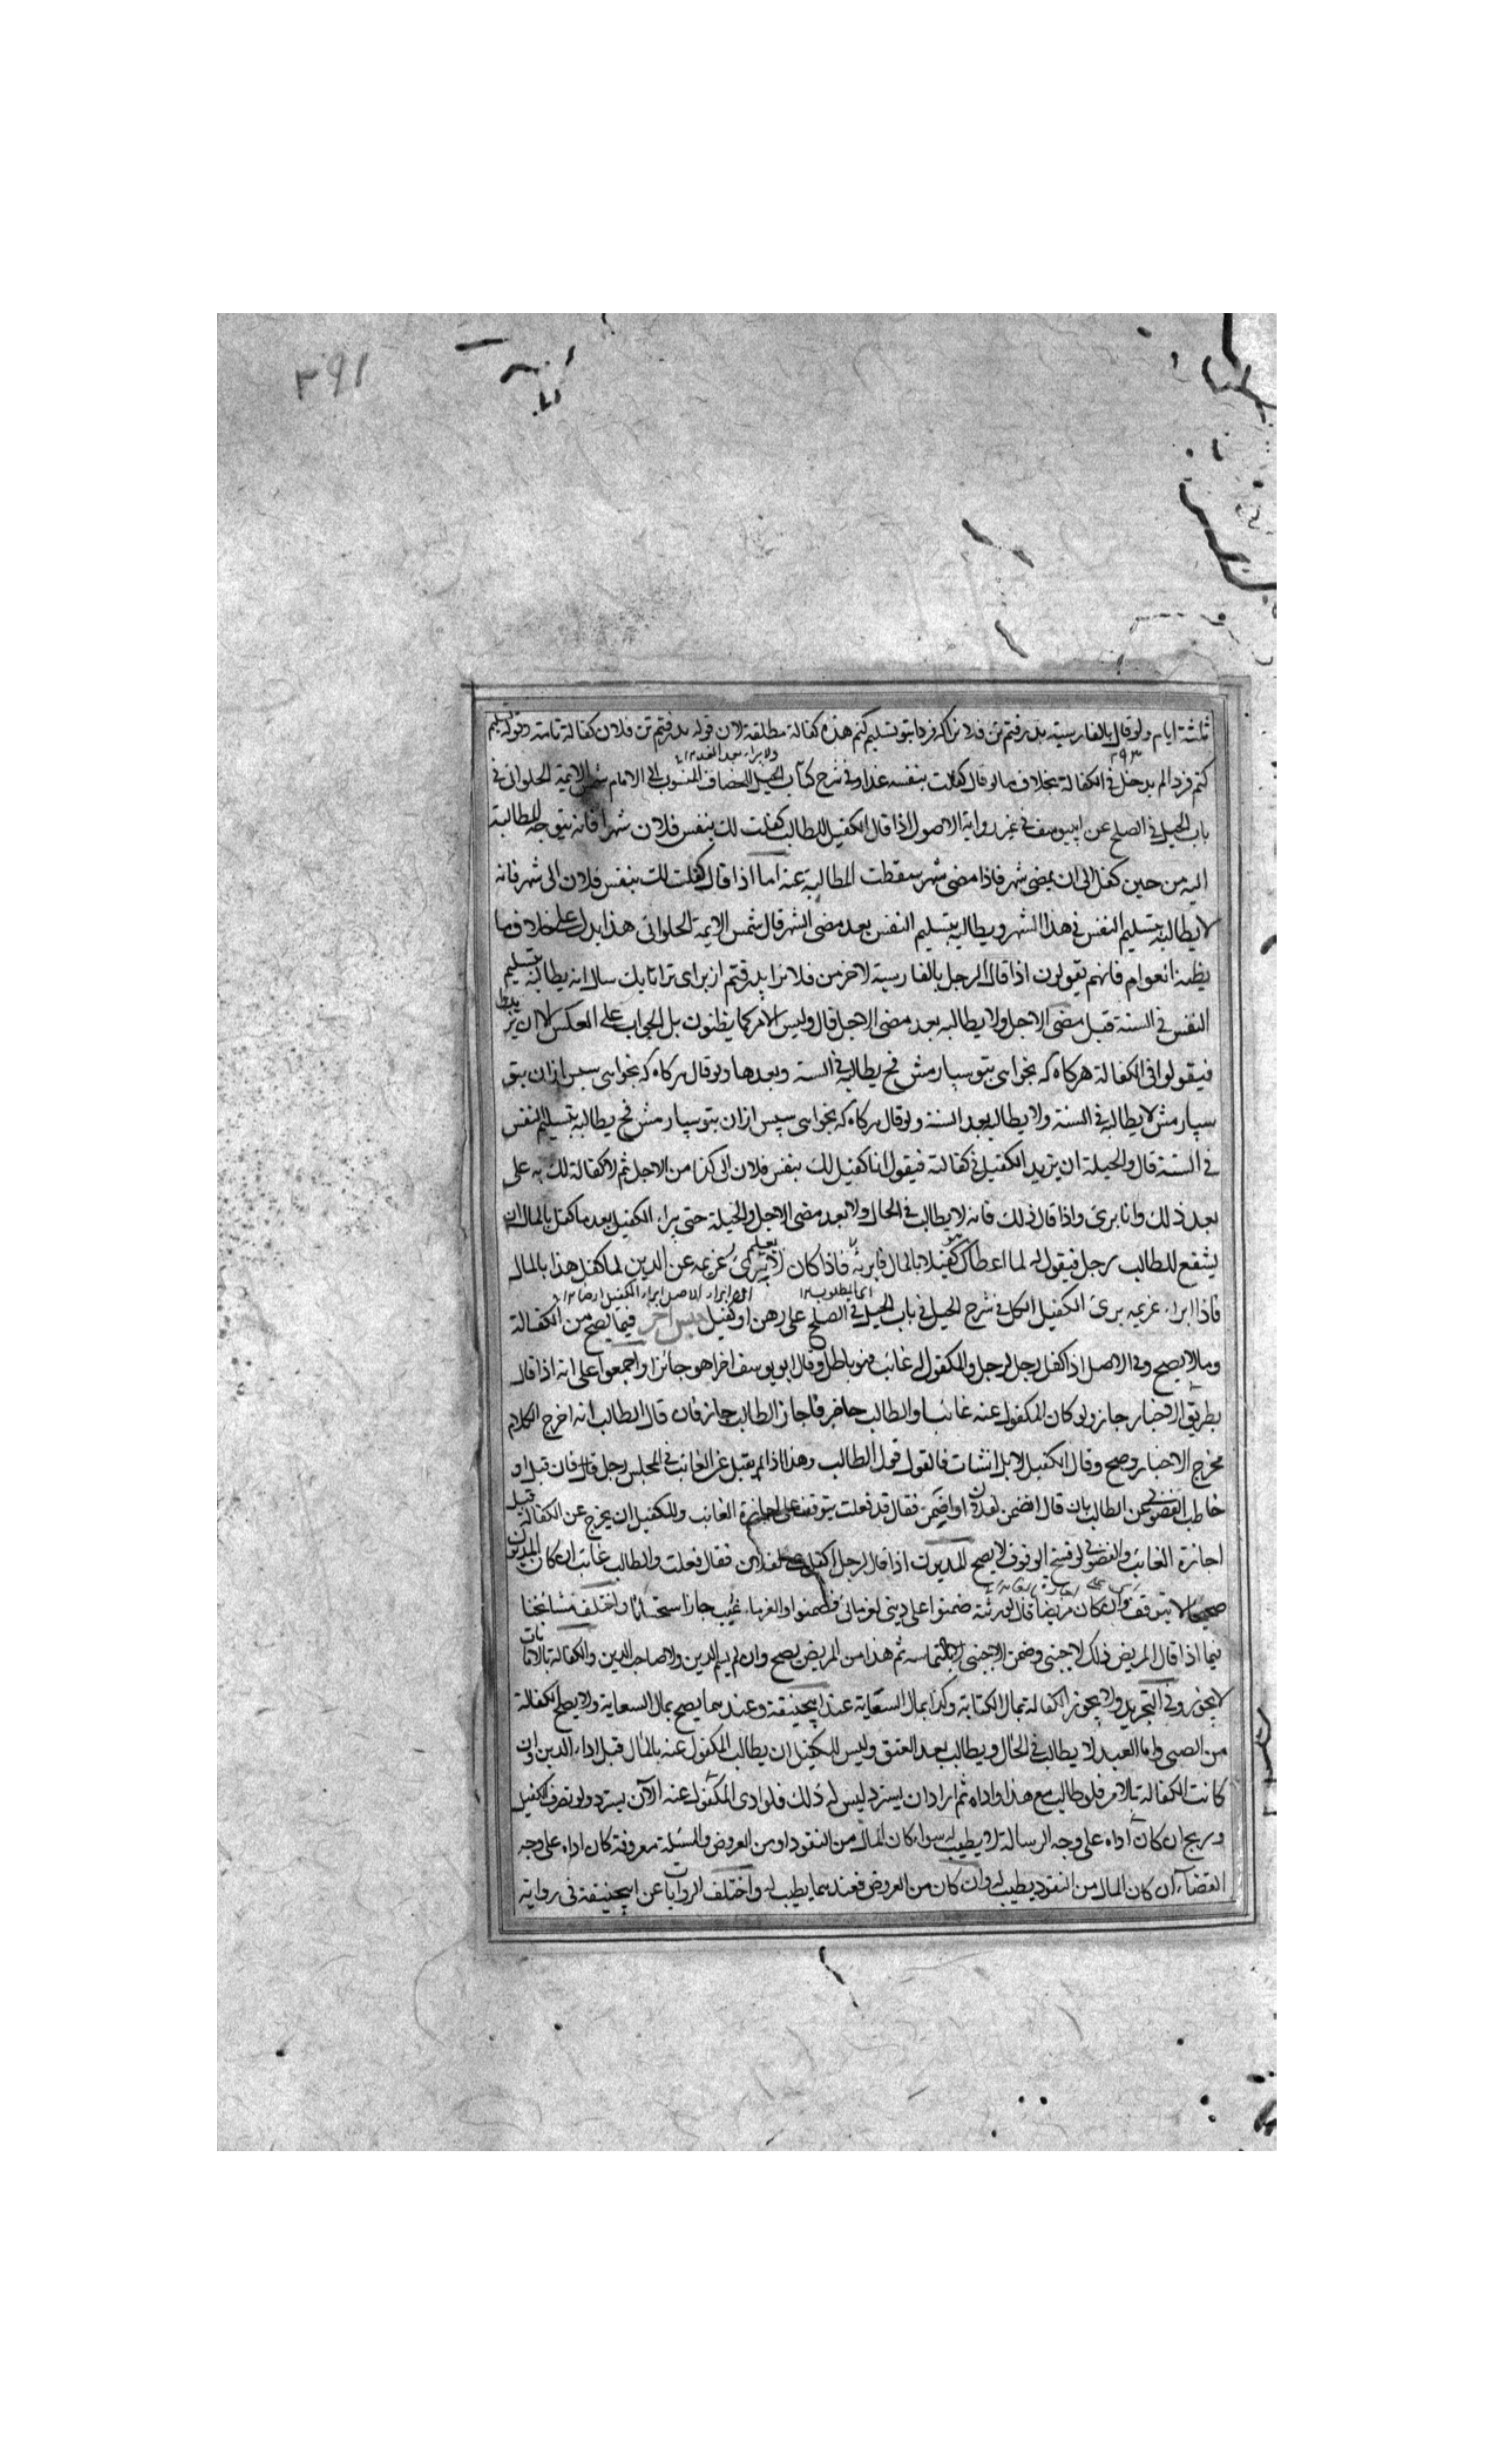 ٣٩١
ثلثة ايام ولو قال بالفارسية بذيرفتم تن فلانرا كه فردا بتو تسليم كنم هذه كفالة مطلقة لان قوله بذيرفتم تن فلان كفالة تامة وقوله تسليم
كنم فردا لم يدخل في الكفالة بخلاف ما لو قال كفلت بنفسه غدا وفي شرح كتاب الحيل للخصاف المنسوب الى الامام شمس الايمة الحلواني في
باب الحيل في الصلح عن ابييوسف في غير رواية الاصول اذا قال الكفيل للطالب كفلت لك بنفس فلان شهرا فانه يتوجه للطالبة
اليه من حين كفل الى ان يمضي شهر فاذا مضى شهر سقطت المطالبة عنه اما اذا قال كفلت لك بنفس فلان الى شهر فانه
لا يطالبه بتسليم النفس في هذا الشهر ويطالبه بتسليم النفس بعد مضى الشهر قال شمس الايمة الحلواني هذا يدل على خلاف ما
يظنه العوام فانهم يقولون اذا قال الرجل بالفارسية لاخر من فلانرا پذرفتم از براى ترا تا يك سال انه يطالبه بتسليم
النفس في السنة قبل مضى الاجل ولا يطالبه بعد مضى الاجل قال وليس الامر كما يظنون بل الجواب على العكس الا ان
فيقولوا في الكفالة هركاه كه بخواهى بتو سپارمش فح يطالبه في السنة وبعدها ولو قال هركاه كه بخواهى سپس ازان بتو
سپارمش لا يطالبه في السنة ولا يطالبه بعد السنة ولو قال هركاه كه بخواهى سپس ازان بتو سپارمش فح يطالبه بتسليم النفس
في السنة قال والحيلة ان يزيد الكفيل في كفالته فيقول انا كفيل لك بنفس فلان الى كذا من الاجل ثم لا كفالة لك به على
بعد ذلك وانا برئ واذا قال ذلك فانه لا يطالب في الحال ولا بعد مضى الاجل والحيلة حتى يبراء الكفيل بعد ما كفل بالمال ان
يشفع للطالب رجل فيقول له لما اعطاك كفيلا بالمال فابرئه فاذا كان لا يبرئ غريمه عن الدين لما كفل هذا بالمال
فاذا ابراء غريمه برئ الكفيل الكل في شرح الحيل في باب الحيل في الصلح على رهن او كفيل جنس اخر فيما يصح من الكفالة
وما لا يصح وفي الاصل اذا كفل رجل لرجل والمكفول له غائب فهو باطل وقال ابو يوسف اخرا هو جائز واجمعوا على انه اذا قال
بطريق الاخبار جاز ولو كان المكفول عنه غائبا والطالب حاضر فاجاز الطالب جاز فان قال الطالب انه اخرج الكلام
مخرج الاخبار وصح وقال الكفيل لا بل انشات فالقول قول الطالب وهذا اذا لم يقبل عن الغائب في المجلس رجل فان قبل او
خاطب الفضولي عن الطالب بان قال اضمن لفلان او اضمن فقال قد فعلت يتوقف على اجازة الغائب وللكفيل ان يخرج عن الكفالة قبل
اجازة الغائب والفضولي لو فسخ الوقوف لا يصح المديون اذا قال لرجل اكفل لفلان فقال فعلت والطالب غائب ان كان المديون
صحيحا لا يتوقف وان كان مريضا قال لورثته ضمنوا على ديني لغرمائي فضمنوا والغرماء غيب جاز استحسانا واختلف مشائخنا
فيما اذا قال المريض ذلك لاجنبي وضمن الاجنبي بالتماسه ثم هذا من المريض يصح وان لم يسم الدين ولا صاحب الدين والكفالة بالامانات
لا يجوز وفي التجريد ولا يجوز الكفالة بمال الكتابة وكذا بمال السعاية عند ابيحنيفة وعندهما يصح بمال السعاية ولا يصح الكفالة
من الصبي واما العبد لا يطالب في الحال ويطالب بعد العتق وليس للكفيل ان يطالب المكفول عنه بالمال قبل اداء الدين وان
كانت الكفالة بالامر فلو طالب مع هذا واداه ثم اراد ان يسترد ليس له ذلك فلو ادى المكفول عنه الآن يسترد ولو تصرف الكفيل
وربح ان كان اداه على وجه الرسالة لا يطيب له سواء كان المال من النقود او من العروض والمسئلة معروفة كان اداه على وجه
القضاء ان كان المال من النقود يطيب له وان كان من العروض فعندهما يطيب له واختلف الروايات عن ابيحنيفة في رواية